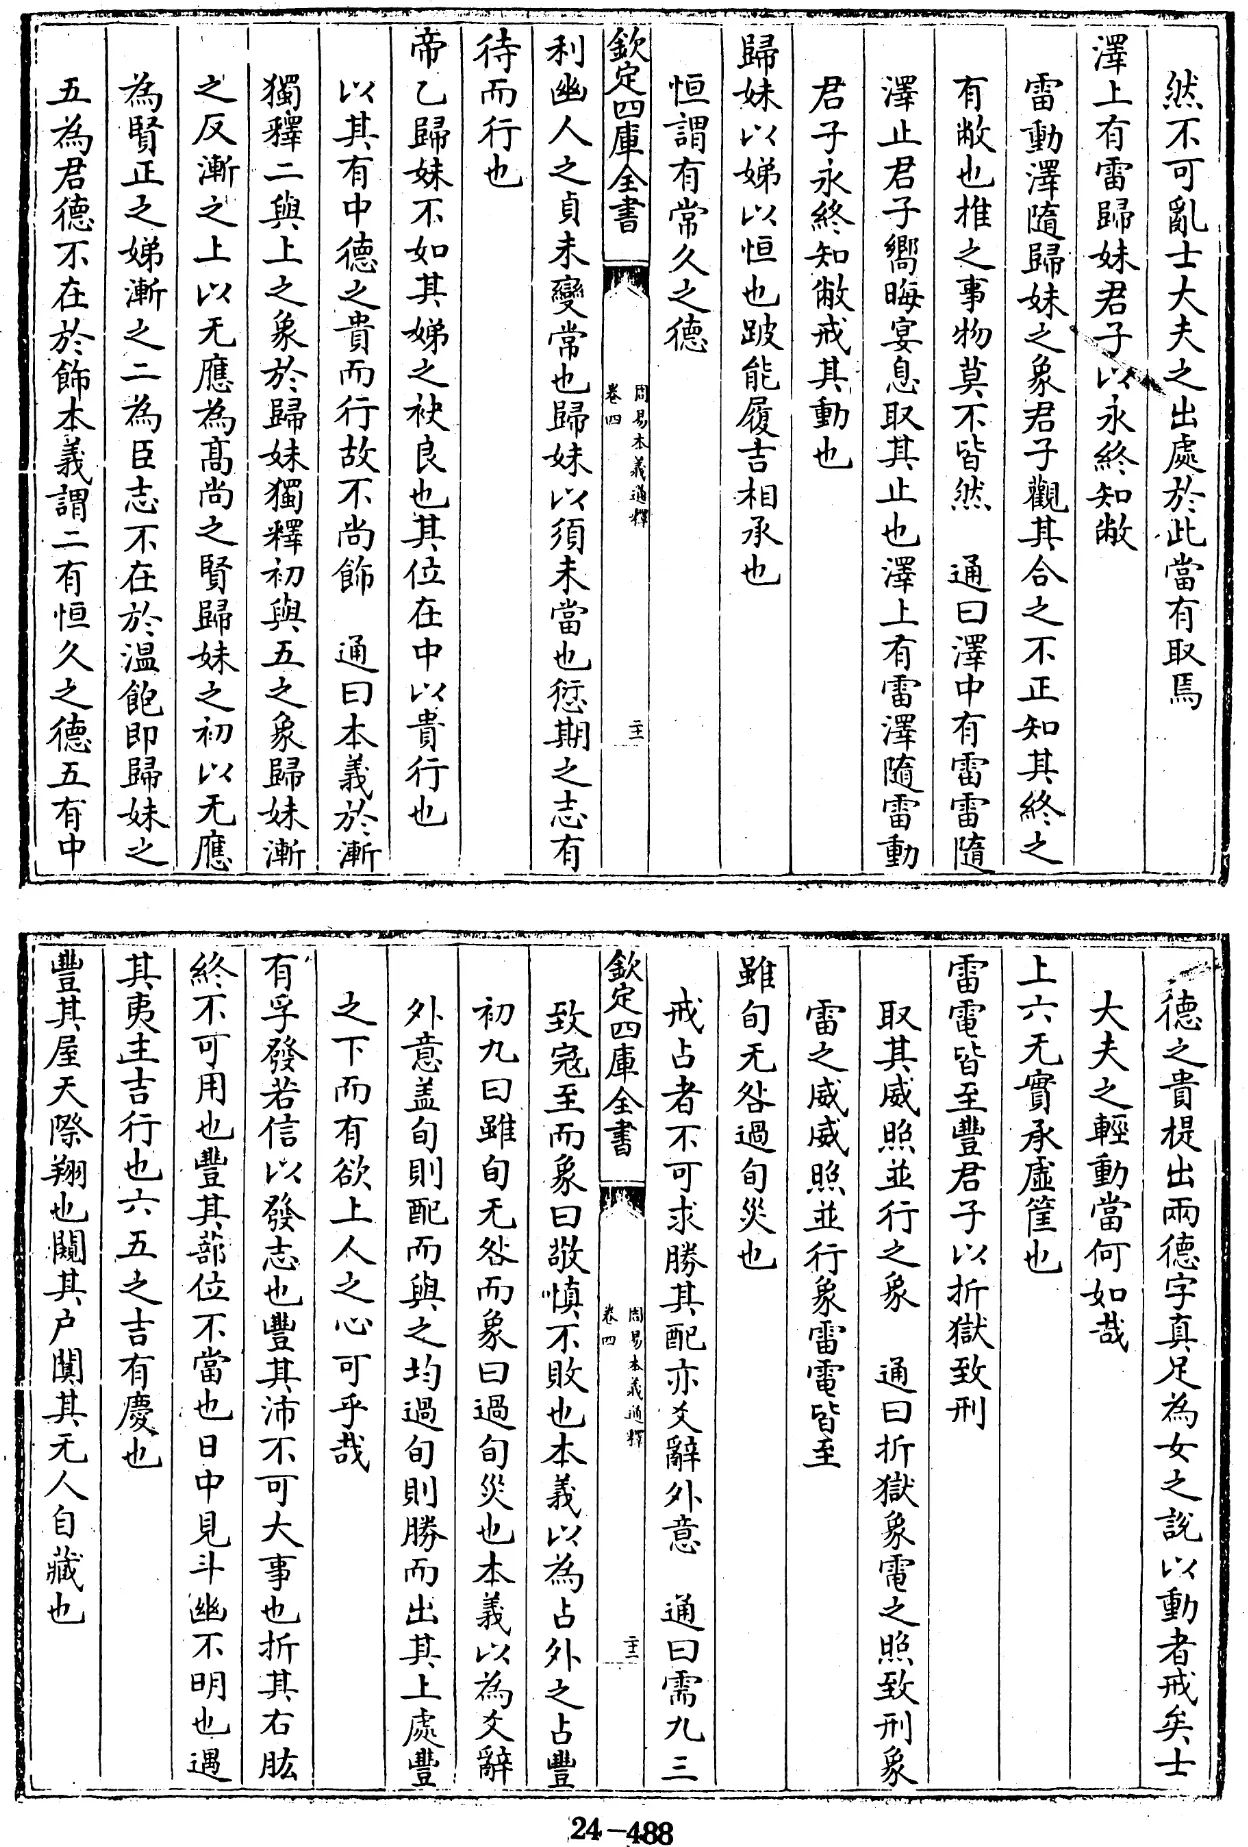 然不可亂士大夫之出處於此當有取焉
澤上有雷歸妹君子以永終知敝
雷動澤隨歸妹之象君子觀其合之不正知其終之
有敝也推之事物莫不皆然　通曰澤中有雷雷隨
澤止君子嚮晦宴息取其止也澤上有雷澤隨雷動
君子永終知敝戒其動也
歸妹以娣以恒也跛能履吉相承也
恒謂有常久之德
欽定四庫全書
周易本義通釋
卷四
二十一
利幽人之貞未變常也歸妹以須未當也愆期之志有
待而行也
帝乙歸妹不如其娣之袂良也其位在中以貴行也
以其有中德之貴而行故不尚飾　通曰本義於漸
獨釋二與上之象於歸妹獨釋初與五之象歸妹漸
之反漸之上以无應為髙尚之賢歸妹之初以无應
為賢正之娣漸之二為臣志不在於温飽即歸妹之
五為君德不在於飾本義謂二有恒久之德五有中
德之貴提出兩德字真足為女之說以動者戒矣士
大夫之輕動當何如哉
上六无實承虛筐也
雷電皆至豐君子以折獄致刑
取其威照並行之象　通曰折獄象電之照致刑象
雷之威威照並行象雷電皆至
雖旬无咎過旬災也
戒占者不可求勝其配亦爻辭外意　通曰需九三
欽定四庫全書
周易本義通釋
卷四
二十二
致冦至而象曰敬慎不敗也本義以為占外之占豐
初九曰雖旬无咎而象曰過旬災也本義以為爻辭
外意盖旬則配而與之均過旬則勝而出其上處豐
之下而有欲上人之心可乎哉
有孚發若信以發志也豐其沛不可大事也折其右肱
終不可用也豐其蔀位不當也日中見斗幽不明也遇
其夷主吉行也六五之吉有慶也
豐其屋天際翔也闚其户闃其无人自藏也
24-488